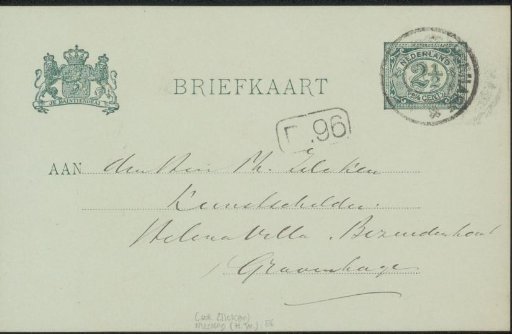 JE MAINTIENDRAI
BRIEFKAART
NEDERLAND
2½
CENT
D.96
AAN den Heer Ph. Zilcken
Kunstschilder
Helena Villa. Bezuidenhout
's Gravenhage
(aan Zilcken)